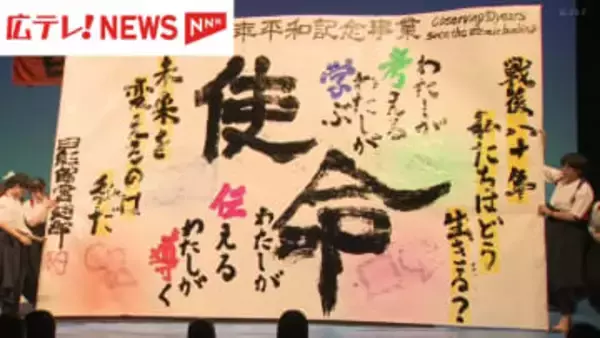 広テレ!NEWS NNN
年平和記念事業
Observing 80 years
since the atomic bombing
戦後八十年
私たちはどう
生きる?
わたしが
考える
わたしが
学ぶ
使命
わたしが
伝える
わたしが
導く
未来を
変えるのは
私だ